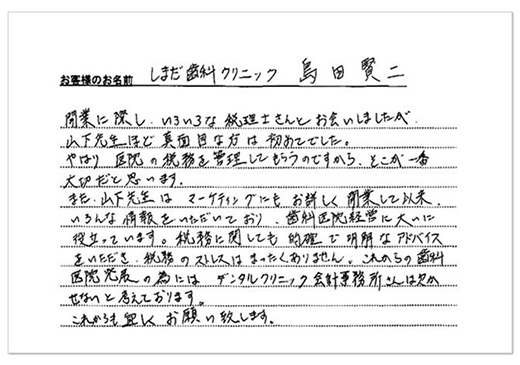 お客様のお名前 しまだ歯科クリニック 島田賢二
開業に際し、いろいろな税理士さんとお会いしましたが、
山下先生ほど真面目な方は初めてでした。
やはり医院の税務を管理してもらうのですから、そこが一番
大切だと思います。
また、山下先生はマーケティングにもお詳しく開業して以来、
いろんな情報をいただいており、歯科医院経営に大いに
役立っています。税務に関しても的確で明解なアドバイス
をいただき、税務のストレスはまったくありません。これからの歯科
医院発展の為にはデンタルクリニック会計事務所さんは欠か
せないと考えております。
これからも宜しくお願い致します。